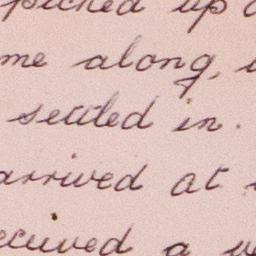 picked up
me along,
settled in.
arrived at
eceived a